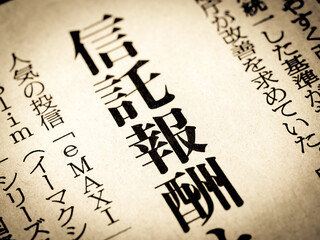 やすく
統一した基準が
庁が改善を求めていた
信託報酬
人気の投信「eMAXI
lim（イーマクシ
シリーズ